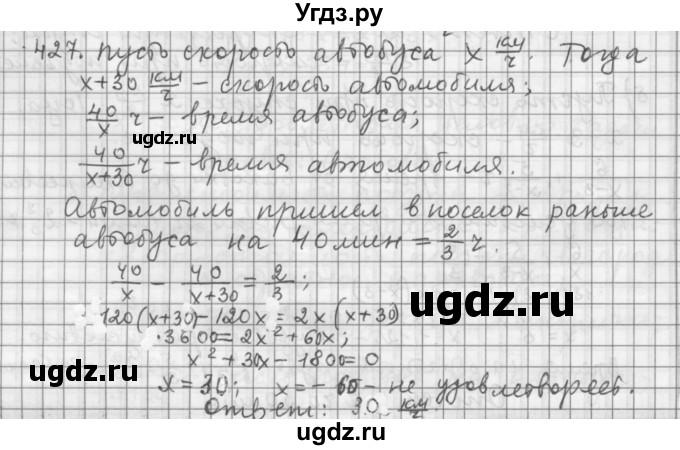 Угдз.ру
427. Пусть скорость автобуса x км/ч. Тогда
x+30 км/ч – скорость автомобиля;
40/x ч – время автобуса;
ugdz.ru
ugdz.ru
40/(x+30) ч – время автомобиля.
ugdz.ru
Автомобиль пришел в поселок раньше
автобуса на 40 мин = 2/3 ч.
40/x – 40/(x+30) = 2/3;
ugdz.ru
120(x+30) – 120x = 2x(x+30)
3600 = 2x²+60x;
x²+30x–1800=0
ugdz.ru
ugdz.ru
x=30; x=–60 – не удовлетворяет.
Ответ: 30 км/ч.
ugdz.ru